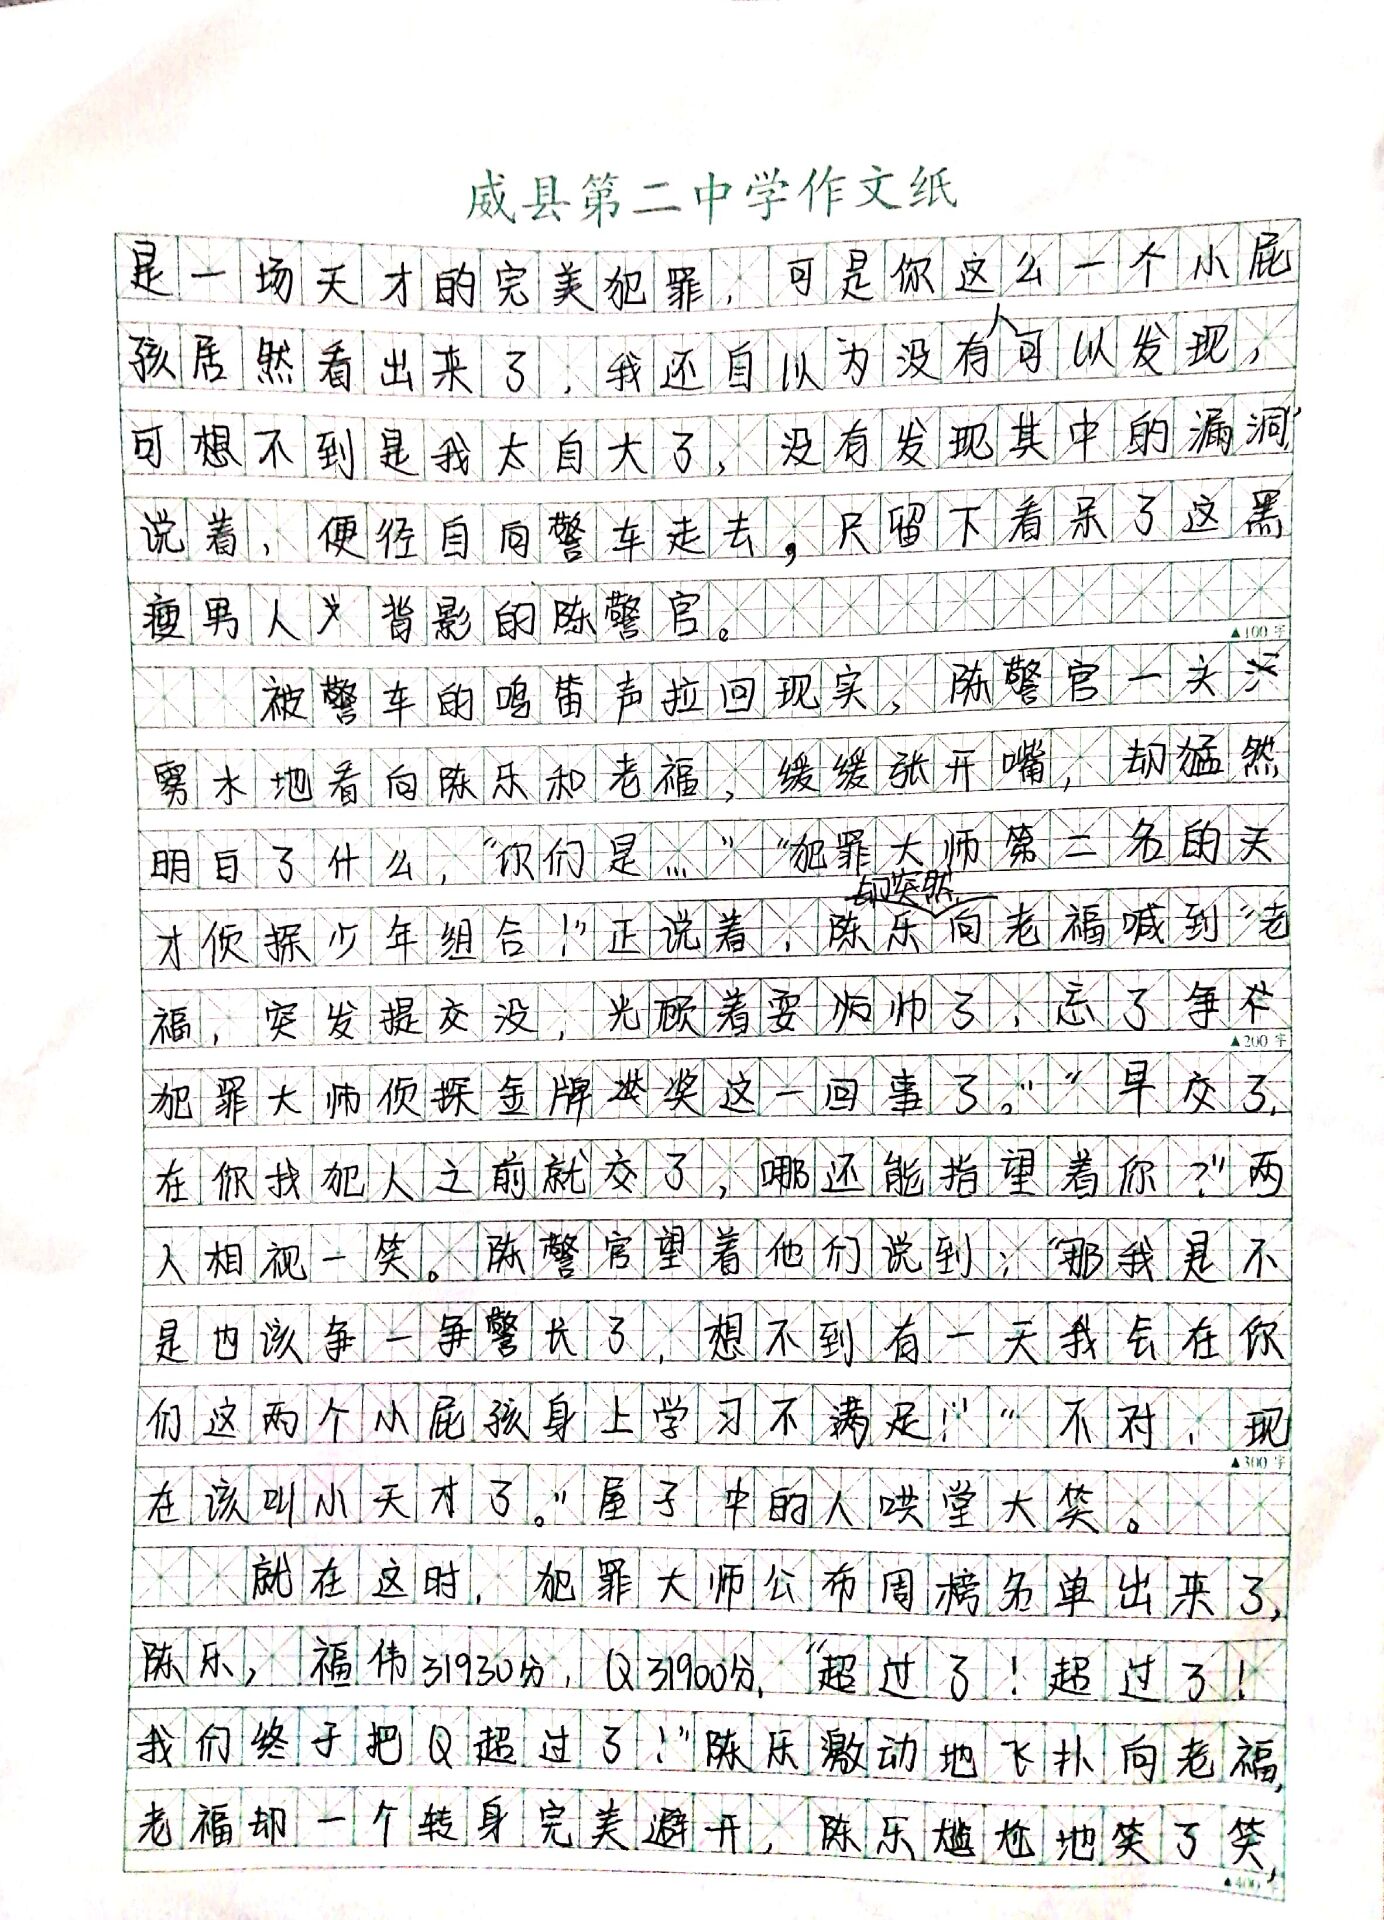 威县第二中学作文纸
是一场天才的完美犯罪，可是你这么一个小屁
孩居然看出来了，我还自以为没有人可以发现，
可想不到是我太自大了，没有发现其中的漏洞，”
说着，便径自向警车走去，只留下看呆了这黑
瘦男人背影的陈警官。
▲100字
被警车的鸣笛声拉回现实，陈警官一头
雾水地看向陈乐和老福，缓缓张开嘴，却猛然
明白了什么，“你们是…”“犯罪大师第二名的天
才侦探少年组合！”正说着，陈乐却突然向老福喊到“老
福，突发提交没，光顾着耍帅了，忘了争
▲200字
犯罪大师侦探金牌奖这一回事了。”“早交了，
在你找犯人之前就交了，哪还能指望着你？”两
人相视一笑。陈警官望着他们说到：“那我是不
是也该争一争警长了，想不到有一天我会在你
们这两个小屁孩身上学习不满足！”“不对，现
▲300字
在该叫小天才了。”屋子中的人哄堂大笑。
就在这时，犯罪大师公布周榜名单出来了，
陈乐，福伟31930分，Q31900分，“超过了！超过了！
我们终于把Q超过了！”陈乐激动地飞扑向老福，
老福却一个转身完美避开，陈乐尴尬地笑了笑，
▲400字